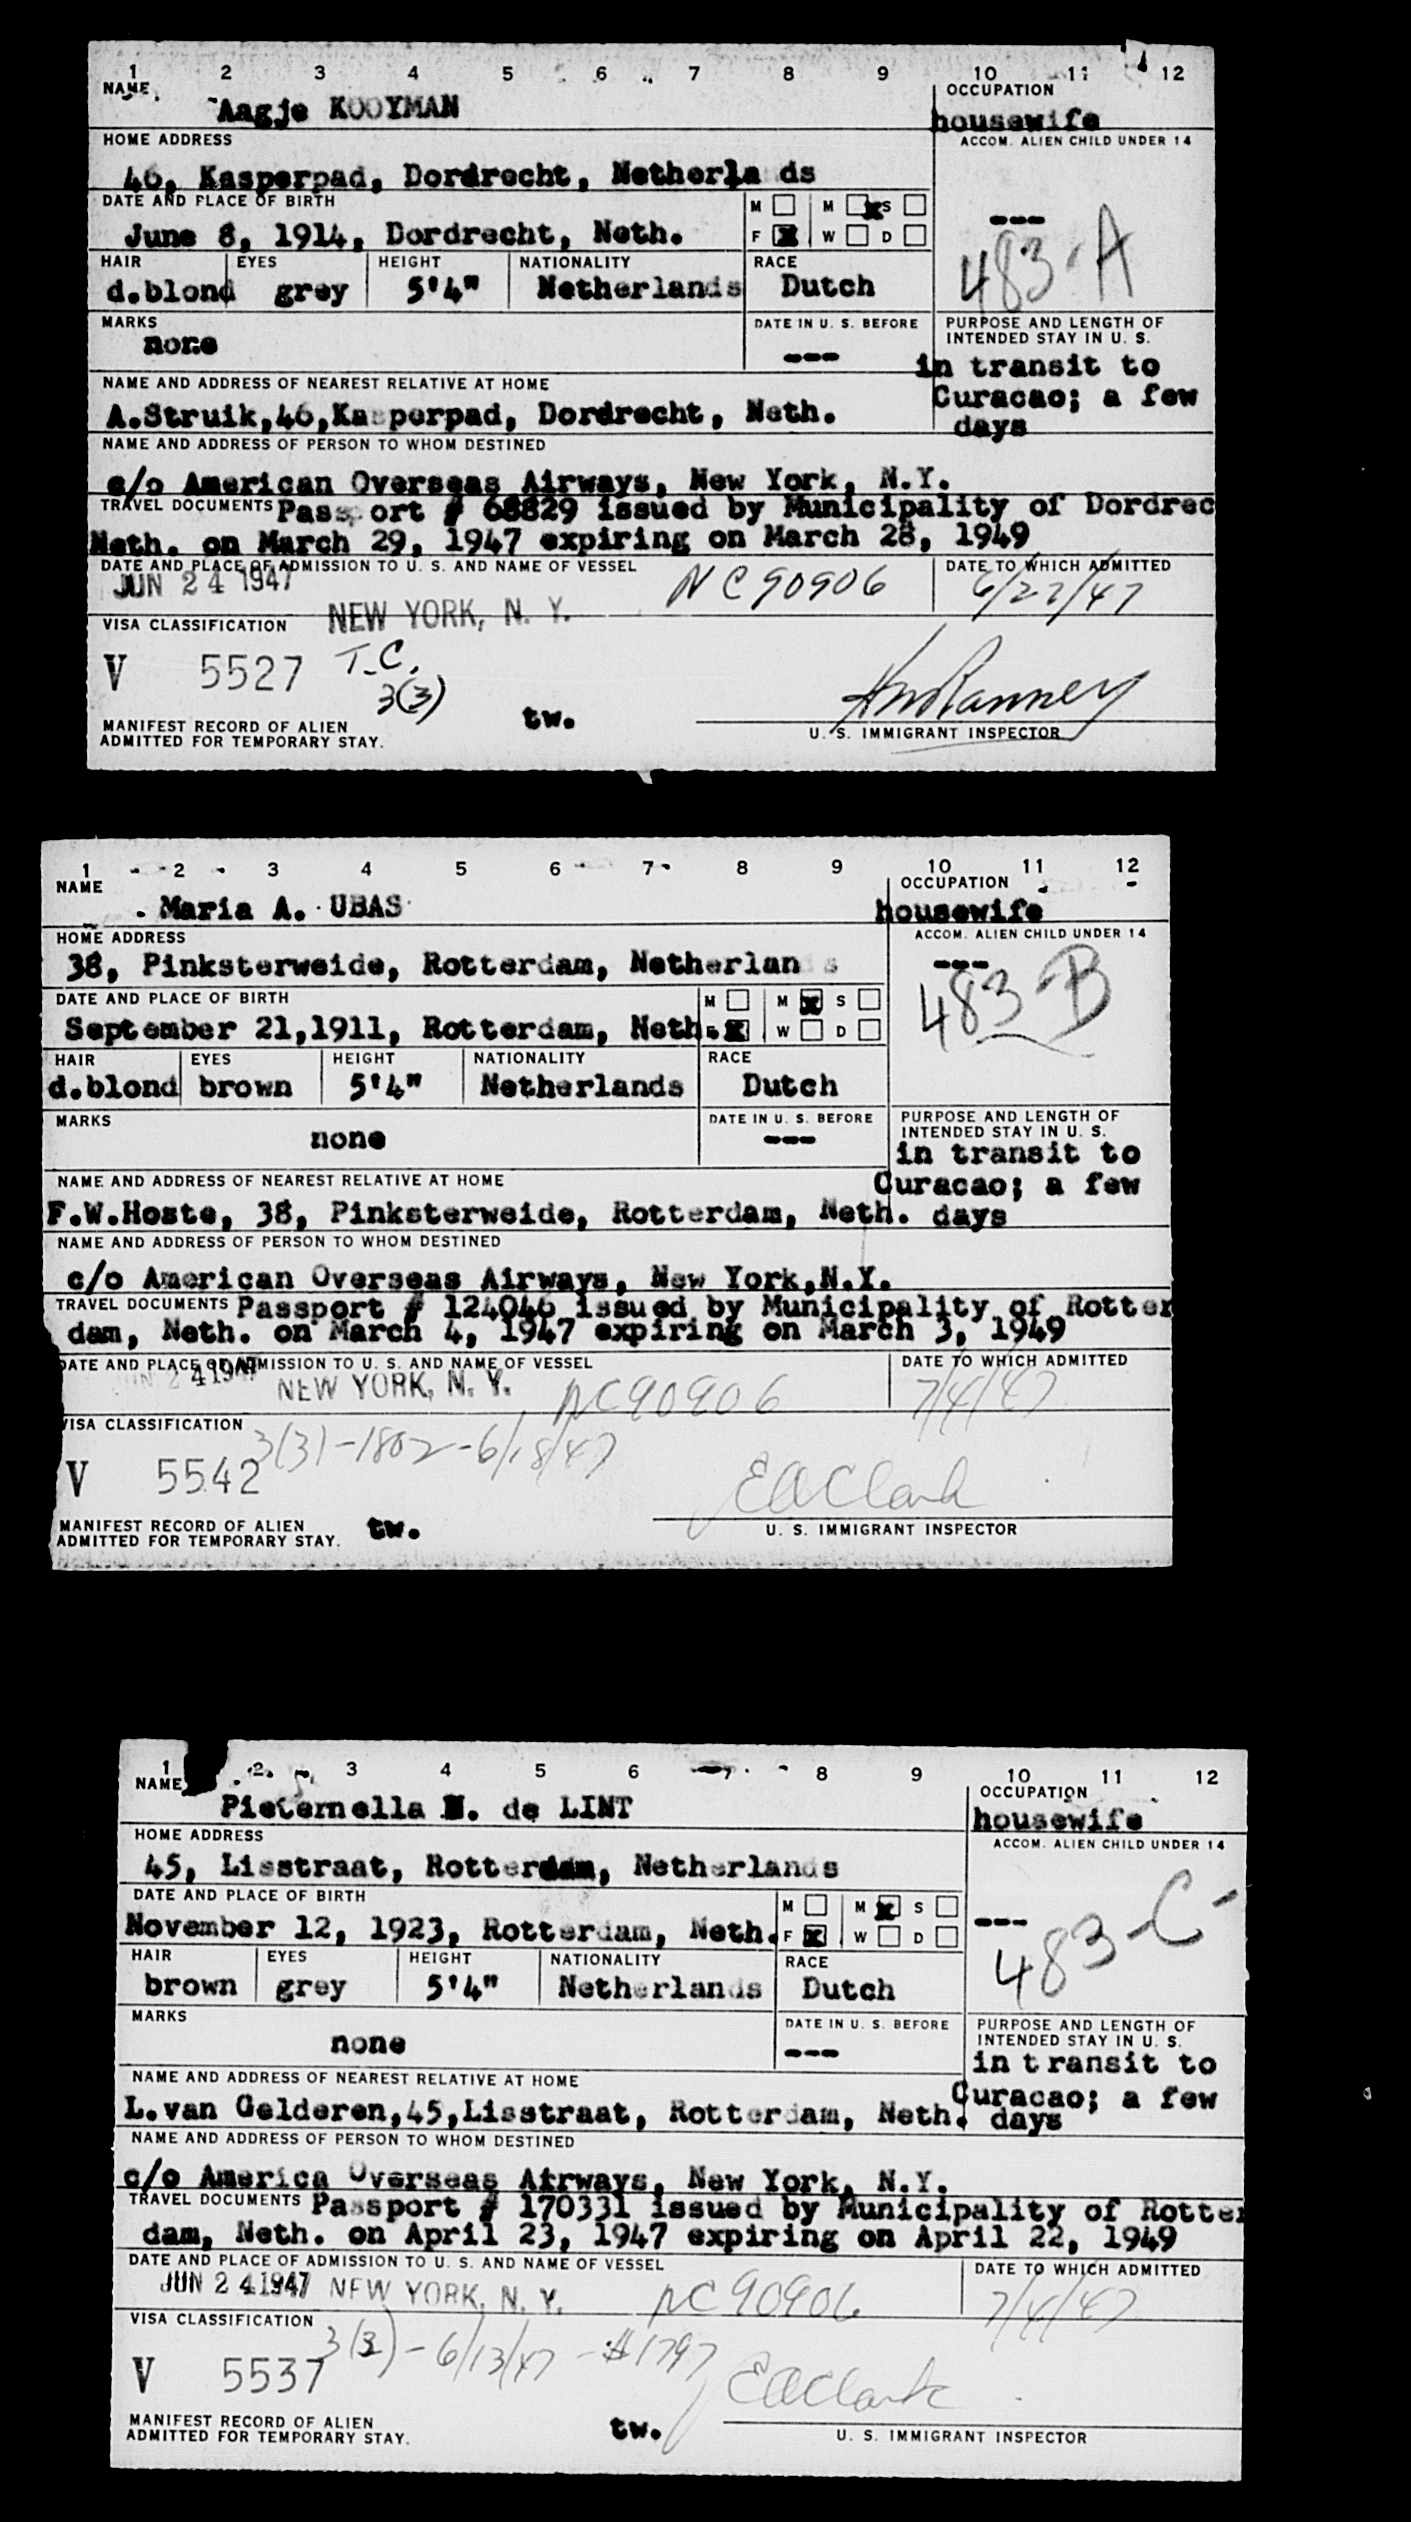 1 2 3 4 5 6 7 8 9 10 11 12
NAME OCCUPATION
Aagje KOOYMAN housewife
HOME ADDRESS ACCOM. ALIEN CHILD UNDER 14
46, Kasperpad, Dordrecht, Netherla ds ---
DATE AND PLACE OF BIRTH M M S
June 8, 1914, Dordrecht, Neth. F W D 483-A
HAIR EYES HEIGHT NATIONALITY RACE
d.blond grey 5'4" Netherlands Dutch
MARKS DATE IN U. S. BEFORE PURPOSE AND LENGTH OF
INTENDED STAY IN U. S.
none --- in transit to
NAME AND ADDRESS OF NEAREST RELATIVE AT HOME Curacao; a few
A.Struik,46,Kasperpad, Dordrecht, Neth. days
NAME AND ADDRESS OF PERSON TO WHOM DESTINED
c/o American Overseas Airways, New York, N.Y.
TRAVEL DOCUMENTS Passport # 68829 issued by Municipality of Dordrec
Neth. on March 29, 1947 expiring on March 28, 1949
DATE AND PLACE OF ADMISSION TO U. S. AND NAME OF VESSEL DATE TO WHICH ADMITTED
JUN 24 1947 NEW YORK, N. Y. NC90906 6/27/47
VISA CLASSIFICATION
V 5527 T.C.
3(3)
MANIFEST RECORD OF ALIEN tw.
ADMITTED FOR TEMPORARY STAY. U. S. IMMIGRANT INSPECTOR
1 2 3 4 5 6 7 8 9 10 11 12
NAME OCCUPATION
Maria A. UBAS housewife
HOME ADDRESS ACCOM. ALIEN CHILD UNDER 14
38, Pinksterweide, Rotterdam, Netherlan s ---
DATE AND PLACE OF BIRTH M M S 483-B
September 21,1911, Rotterdam, Neth. F W D
HAIR EYES HEIGHT NATIONALITY RACE
d.blond brown 5'4" Netherlands Dutch
MARKS DATE IN U. S. BEFORE PURPOSE AND LENGTH OF
INTENDED STAY IN U. S.
none --- in transit to
NAME AND ADDRESS OF NEAREST RELATIVE AT HOME Curacao; a few
F.W.Hoste, 38, Pinksterweide, Rotterdam, Neth. days
NAME AND ADDRESS OF PERSON TO WHOM DESTINED
c/o American Overseas Airways, New York,N.Y.
TRAVEL DOCUMENTS Passport # 124046 issued by Municipality of Rotter
dam, Neth. on March 4, 1947 expiring on March 3, 1949
DATE AND PLACE OF ADMISSION TO U. S. AND NAME OF VESSEL DATE TO WHICH ADMITTED
JUN 24 1947 NEW YORK, N. Y. NC90906 7/4/47
VISA CLASSIFICATION 3(3)-1802-6/18/47
V 5542 EAClark
MANIFEST RECORD OF ALIEN tw.
ADMITTED FOR TEMPORARY STAY. U. S. IMMIGRANT INSPECTOR
1 2 3 4 5 6 7 8 9 10 11 12
NAME OCCUPATION
Pieternella de LINT housewife
HOME ADDRESS ACCOM. ALIEN CHILD UNDER 14
45, Lisstraat, Rotterdam, Netherlands
DATE AND PLACE OF BIRTH M M S ---
November 12, 1923, Rotterdam, Neth. F W D 483-C-
HAIR EYES HEIGHT NATIONALITY RACE
brown grey 5'4" Netherlands Dutch
MARKS DATE IN U. S. BEFORE PURPOSE AND LENGTH OF
INTENDED STAY IN U. S.
none --- in transit to
NAME AND ADDRESS OF NEAREST RELATIVE AT HOME Curacao; a few
L.van Gelderen,45,Lisstraat, Rotterdam, Neth. days
NAME AND ADDRESS OF PERSON TO WHOM DESTINED
c/o America Overseas Airways, New York, N.Y.
TRAVEL DOCUMENTS Passport # 170331 issued by Municipality of Rotter
dam, Neth. on April 23, 1947 expiring on April 22, 1949
DATE AND PLACE OF ADMISSION TO U. S. AND NAME OF VESSEL DATE TO WHICH ADMITTED
JUN 24 1947 NEW YORK, N. Y. NC90906 7/4/47
VISA CLASSIFICATION 3(3)-6/13/47-#1797
V 5537 EAClark
MANIFEST RECORD OF ALIEN tw.
ADMITTED FOR TEMPORARY STAY. U. S. IMMIGRANT INSPECTOR